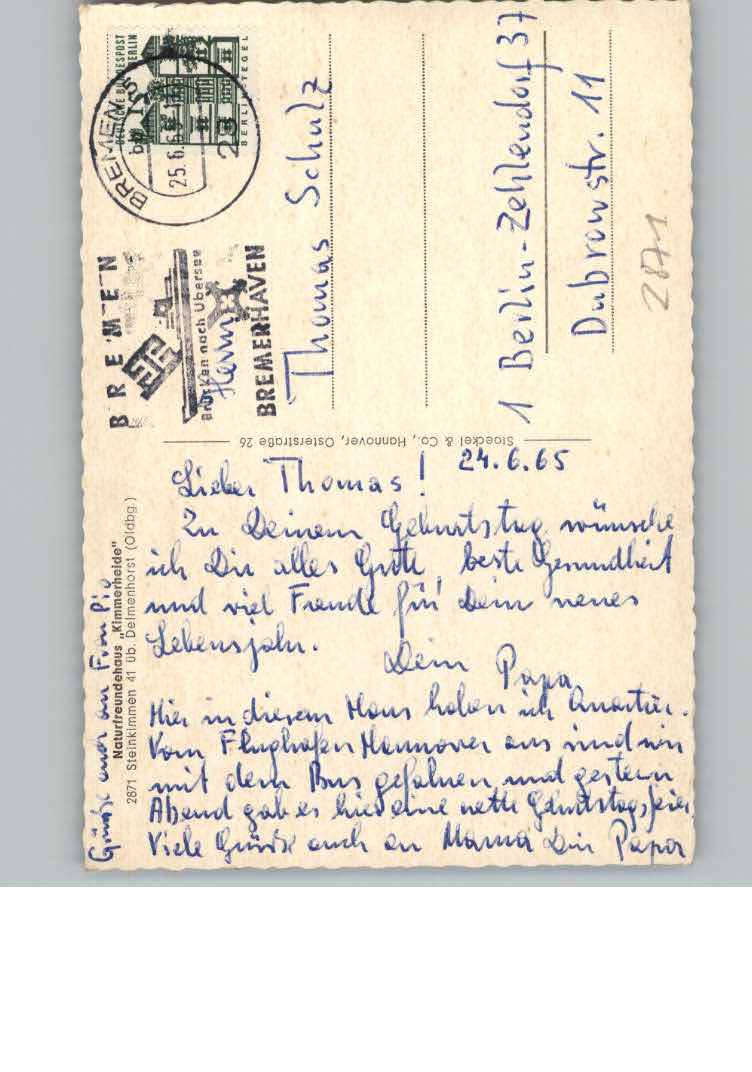 DEUTSCHE BUNDESPOST
BERLIN
BERLIN TEGEL
BREMEN 5
25.6.65
BREMEN
Brücken nach Übersee
BREMERHAVEN
Herrn
Thomas Schulz
1 Berlin-Zehlendorf 37
Dubrowstr. 11
2871
Stoeckel & Co., Hannover, Osterstraße 26
24.6.65
Lieber Thomas!
Zu Deinem Geburtstag wünsche
ich Dir alles Gute, beste Gesundheit
und viel Freude für Dein neues
Lebensjahr.
Dein Papa
Hier in diesem Haus haben ich Quartier.
Vom Flughafen Hannover aus sind wir
mit dem Bus gefahren und gestern
Abend gab es hier eine nette Geburtstagsfeier.
Viele Grüße auch an Mama Dein Papa
Grüße auch an Frau
Naturfreundehaus „Kimmerheide"
2871 Steinkimmen 41 üb. Delmenhorst (Oldbg.)